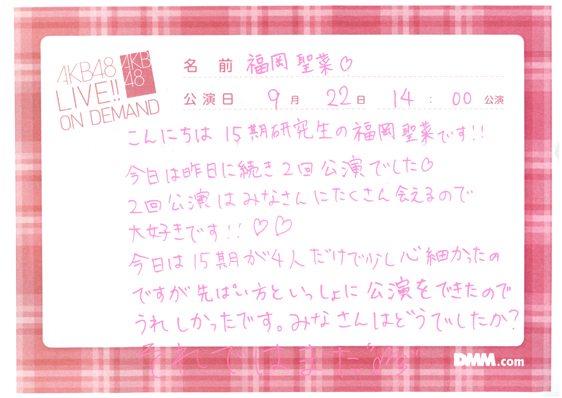 AKB48
LIVE!!
ON DEMAND
AKB
48
名前 福岡 聖菜♡
公演日 9月 22日 14:00公演
こんにちは 15期研究生の福岡聖菜です!!
今日は昨日に続き2回公演でした♡
2回公演はみなさんにたくさん会えるので
大好きです!!♡♡
今日は15期が4人だけで少し心細かったの
ですが先ぱい方といっしょに公演をできたので
うれしかったです。みなさんはどうでしたか?
それではまた
DMM.com